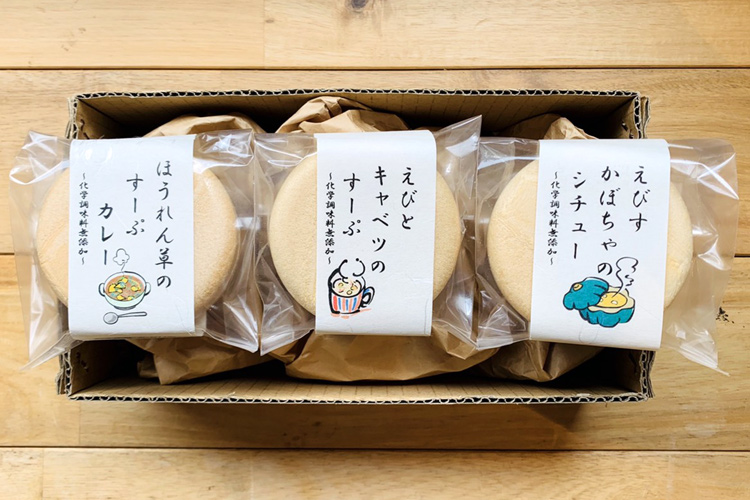 ほうれん草の
すーぷ
カレー
～化学調味料無添加～
えびと
キャベツの
すーぷ
～化学調味料無添加～
えびす
かぼちゃの
シチュー
～化学調味料無添加～